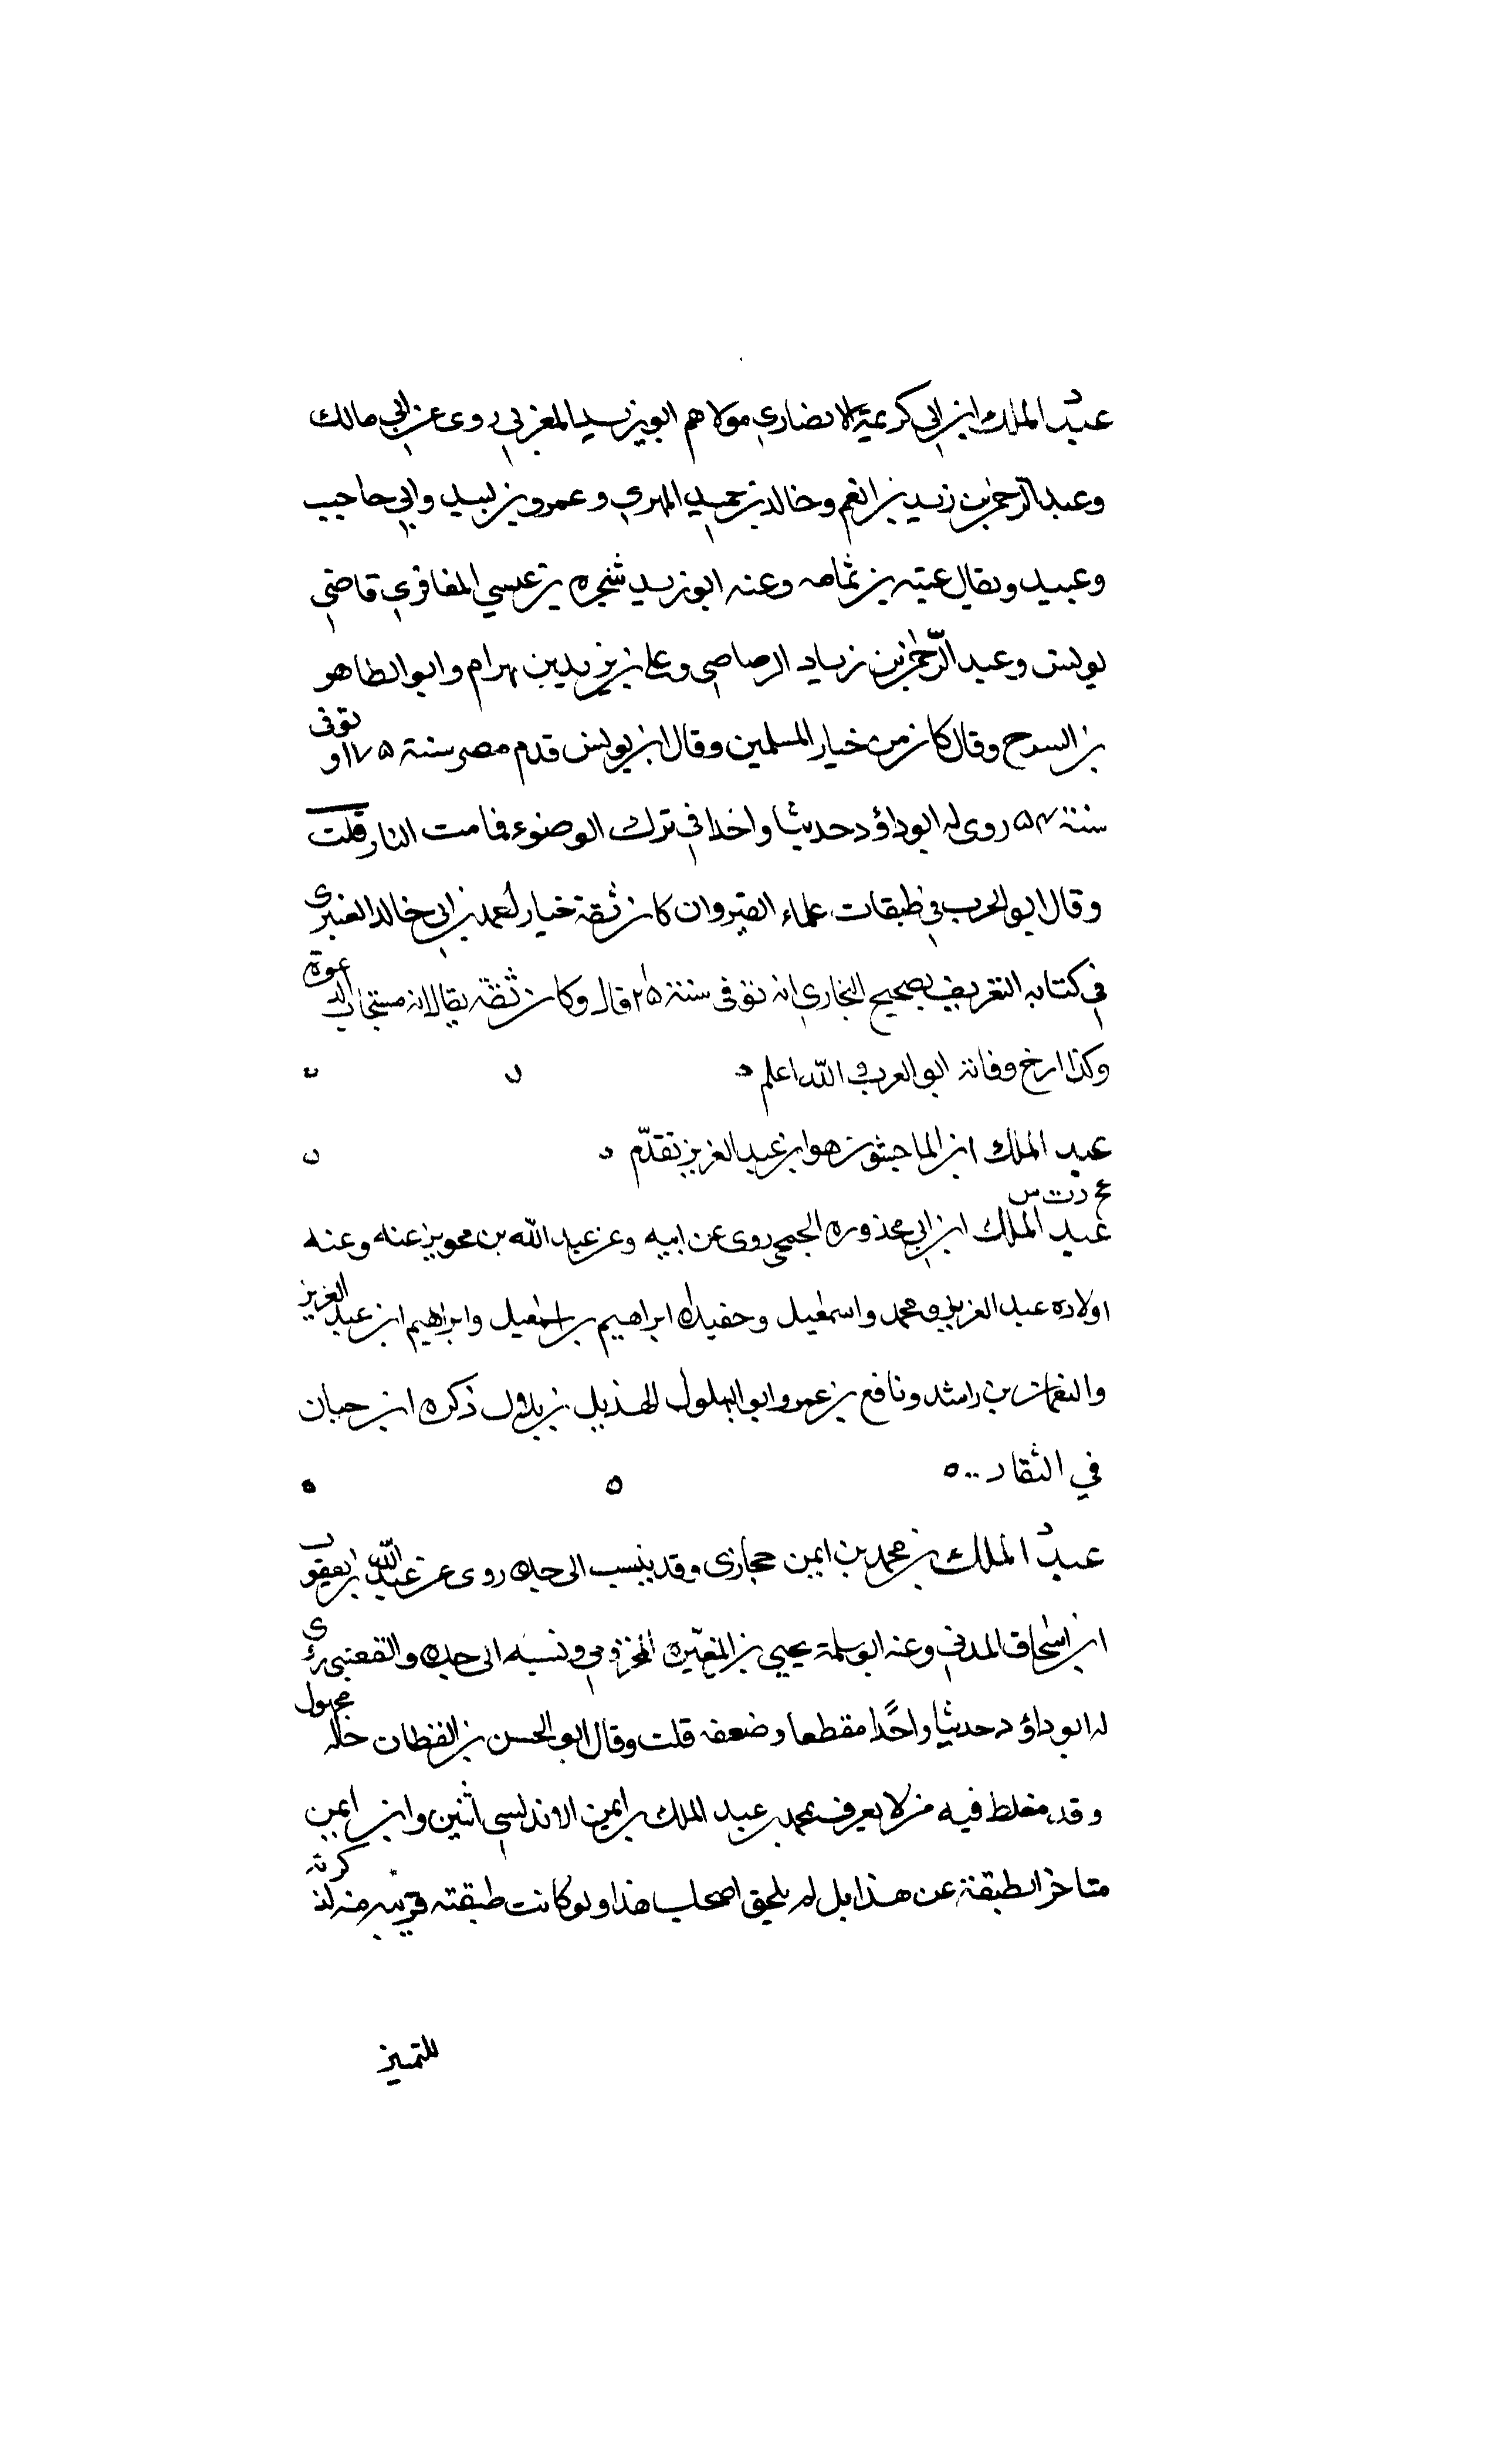 عبد الملك ابن ابي كريمة الانصاري مولاهم ابو يزيد المغربي روى عن ابي مالك
وعبد الرحمن بن زيد بن انعم وخالد بن حميد المهري وعمرو بن لبيد وابي حاجب
وعبيد ويقال عتبه بن ثمامه وعنه ابو زيد شجره بن عيسي المغافري قاضي
يونس وعبد الرحمن بن زياد الرصاصي وعلي بن يزيد بن بهرام وابو الطاهر
بن السرح وقال كان من خيار المسلمين وقال ابن يونس قدم مصر سنة ١٧٥ او توفى
سنة روى له ابو داؤد حديثا واحدا في ترك الوضوء مما مست النار قلت
وقال ابو العرب في طبقات علماء القيروان كان ثقة خيار لعمد بن ابي خالد العنبرى
في كتابه التعريف بصحيح البخاري انه توفى سنة قال وكان ثقة يقال انه مستجاب الدعوة
وكذا ارخ وفاته ابو العرب والله اعلم
عبد الملك ابن الماجشون هو ابن عبد العزيز تقدّم
عخ د ت س
عبد الملك ابن ابي محذوره الجمحى روى عن ابيه وعن عبد الله بن محيريز عنه وعنه
اولاده عبد العزيز ومحمد واسمعيل وحفيداه ابراهيم بن اسمعيل وابراهيم ابن عبد العزيز
والنعمان بن راشد ونافع بن عمر وابو البهلول الهذيل بن بلال ذكره ابن حبان
في الثقات
عبد الملك بن محمد بن ايمن حجازى وقد ينسب الى جده روى عن عبد الله بن يعقوب
ابن اسحاق المدني وعنه ابو سلمة يحيى بن المغيره المخزومي ونسبه الى جده والقعنبى روى
له ابو داؤد حديثا واحدًا مقطعا وضعفه قلت وقال ابو الحسن بن القطان حاله مجهول
وقد يغلط فيه من لا يعرف بمحمد بن عبد الملك بن ايمن الاندلسي اثنين وابن ايمن
متاخر الطبقة عن هذا بل لم يلحق اصحاب هذا ولو كانت طبقته قريبه منه لذكرته
للتميز